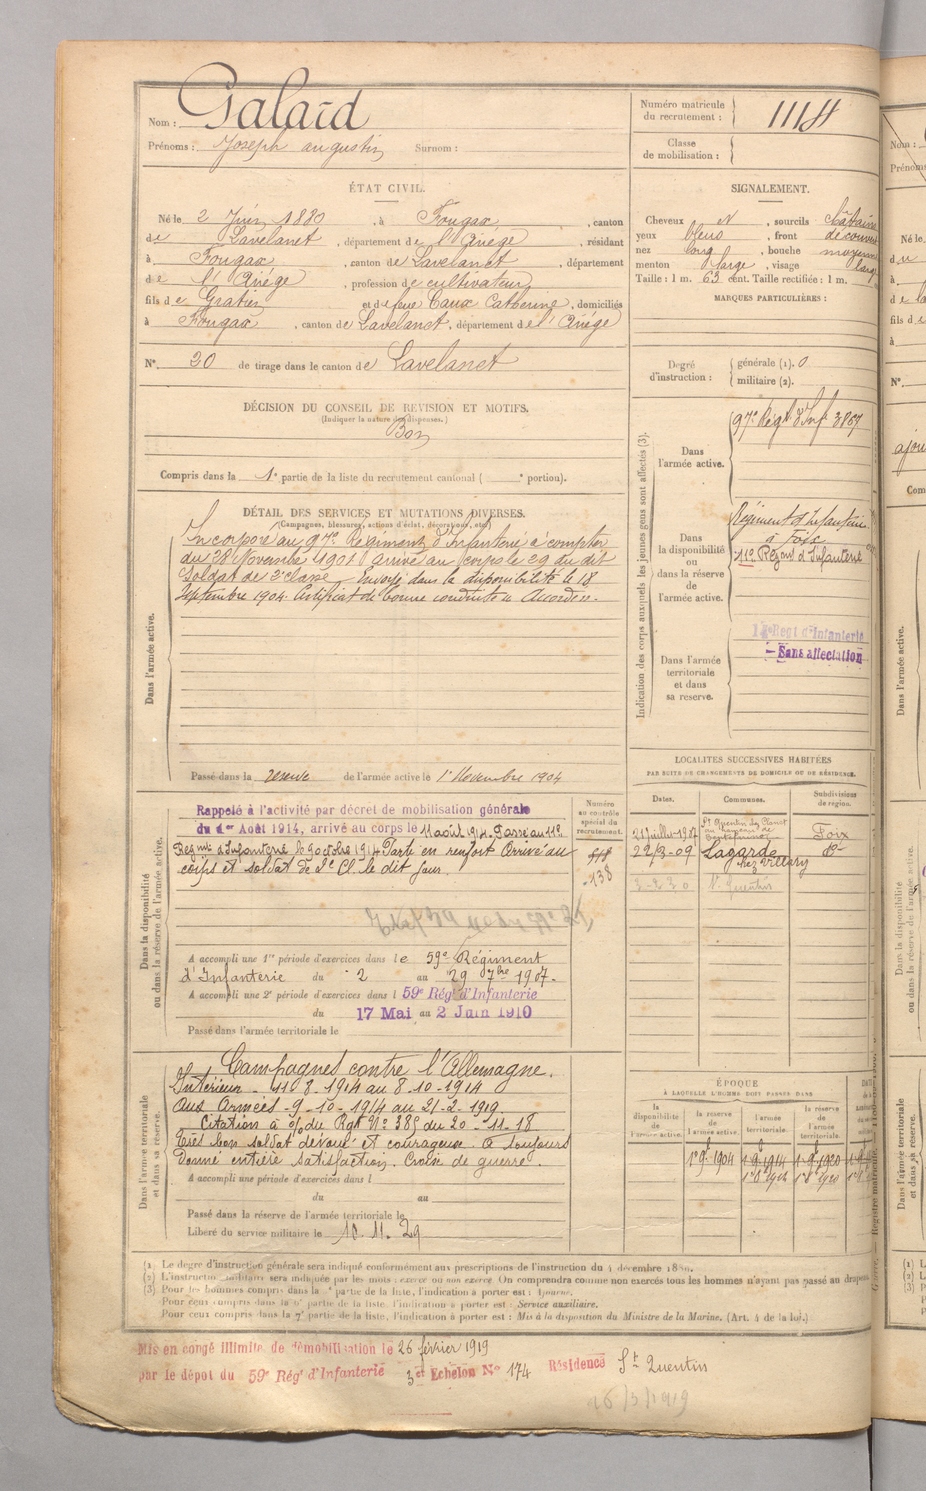 Nom : Galard
Prénoms : Joseph augustin Surnom :
Numéro matricule du recrutement : 1114
Classe de mobilisation :
ÉTAT CIVIL.
Né le 2 Juin 1880, à Fougax, canton
de Lavelanet, département de l'Ariége, résidant
à Fougax, canton de Lavelanet, département
de l'Ariége, profession de cultivateur
fils de Gratien et de feue Caux Catherine, domiciliés
à Fougax, canton de Lavelanet, département de l'Ariége
N° 20 de tirage dans le canton de Lavelanet
SIGNALEMENT.
Cheveux N, sourcils Châtains
yeux bleus, front découvert
nez long, bouche moyenne
menton large, visage large
Taille : 1 m. 63 cent. Taille rectifiée : 1 m.
MARQUES PARTICULIÈRES :
Degré d'instruction : générale (1). 0
militaire (2).
DÉCISION DU CONSEIL DE REVISION ET MOTIFS.
(Indiquer la nature des dispenses.)
Bon
Compris dans la 1e partie de la liste du recrutement cantonal ( e portion).
DÉTAIL DES SERVICES ET MUTATIONS DIVERSES.
(Campagnes, blessures, actions d'éclat, décorations, etc.)
Dans l'armée active.
Incorporé au 97e Régiment d'Infanterie à compter
du 28 Novembre 1901 arrivé au corps le 29 du dit
Soldat de 2e classe Envoyé dans la disponibilité le 18
Septembre 1904. Certificat de bonne conduite « Accordé ».
Passé dans la réserve de l'armée active le 1er Novembre 1904
Indication des corps auxquels les jeunes gens sont affectés (3).
Dans l'armée active.
97e Régt d'Inf 3867
Dans la disponibilité ou dans la réserve de l'armée active.
Régiment d'Infanterie
à Foix
11e Régint d'Infanterie
Dans l'armée territoriale et dans sa réserve.
Régt d'Infanterie
Sans affectation
LOCALITES SUCCESSIVES HABITÉES
PAR SUITE DE CHANGEMENTS DE DOMICILE OU DE RÉSIDENCE.
Dates. Communes. Subdivisions de région.
21 Juillet 1907 St Quentin Foix
22-3-09 Lagarde chez Villary do
3-2-30 St Quentin
Dans la disponibilité ou dans la réserve de l'armée active.
Numéro au contrôle spécial du recrutement.
138
Rappelé à l'activité par décret de mobilisation générale
du 1er Août 1914, arrivé au corps le 11 août 1914. Passé au 11e
Régmt d'Infanterie le 9 octobre 1914 Parti en renfort Arrivé au
corps et soldat de 2e Cl. le dit jour.
A accompli une 1re période d'exercices dans le 59e Régiment
d'Infanterie du 2 au 29 7bre 1907.
A accompli une 2e période d'exercices dans l 59e Rég. d'Infanterie
du 17 Mai au 2 Juin 1910
Passé dans l'armée territoriale le
Dans l'armée territoriale et dans sa réserve.
Campagnes contre l'Allemagne.
Intérieur - 11 8 - 1914 au 8 - 10 - 1914
Aux Armées - 9 - 10 - 1914 au 21 - 2 - 1919
Citation à l'o/ du Rgt N° 385 du 20 - 11 - 18
Très bon soldat dévoué et courageux. A toujours
donné entière satisfaction. Croix de guerre.
A accompli une période d'exercices dans l
du au
Passé dans la réserve de l'armée territoriale le
Libéré du service militaire le 10. 11. 29
ÉPOQUE
À LAQUELLE L'HOMME DOIT PASSER DANS
la disponibilité de l'armée active. la réserve de l'armée active. l'armée territoriale. la réserve de l'armée territoriale.
1-9-1904 1-9-1914 1-9-1920
(1) Le degré d'instruction générale sera indiqué conformément aux prescriptions de l'instruction du 4 décembre 1889.
(2) L'instruction militaire sera indiquée par les mots : exercé ou non exercé. On comprendra comme non exercés tous les hommes n'ayant pas passé au drapeau
(3) Pour les hommes compris dans la partie de la liste, l'indication à porter est : Ajourné.
Pour ceux compris dans la 6e partie de la liste, l'indication à porter est : Service auxiliaire.
Pour ceux compris dans la 7e partie de la liste, l'indication à porter est : Mis à la disposition du Ministre de la Marine. (Art. 4 de la loi.)
Mis en congé illimité de démobilisation le 26 février 1919
par le dépot du 59e Rég' d'Infanterie 3e Echelon N° 174 Résidence St Quentin
16/3/1919